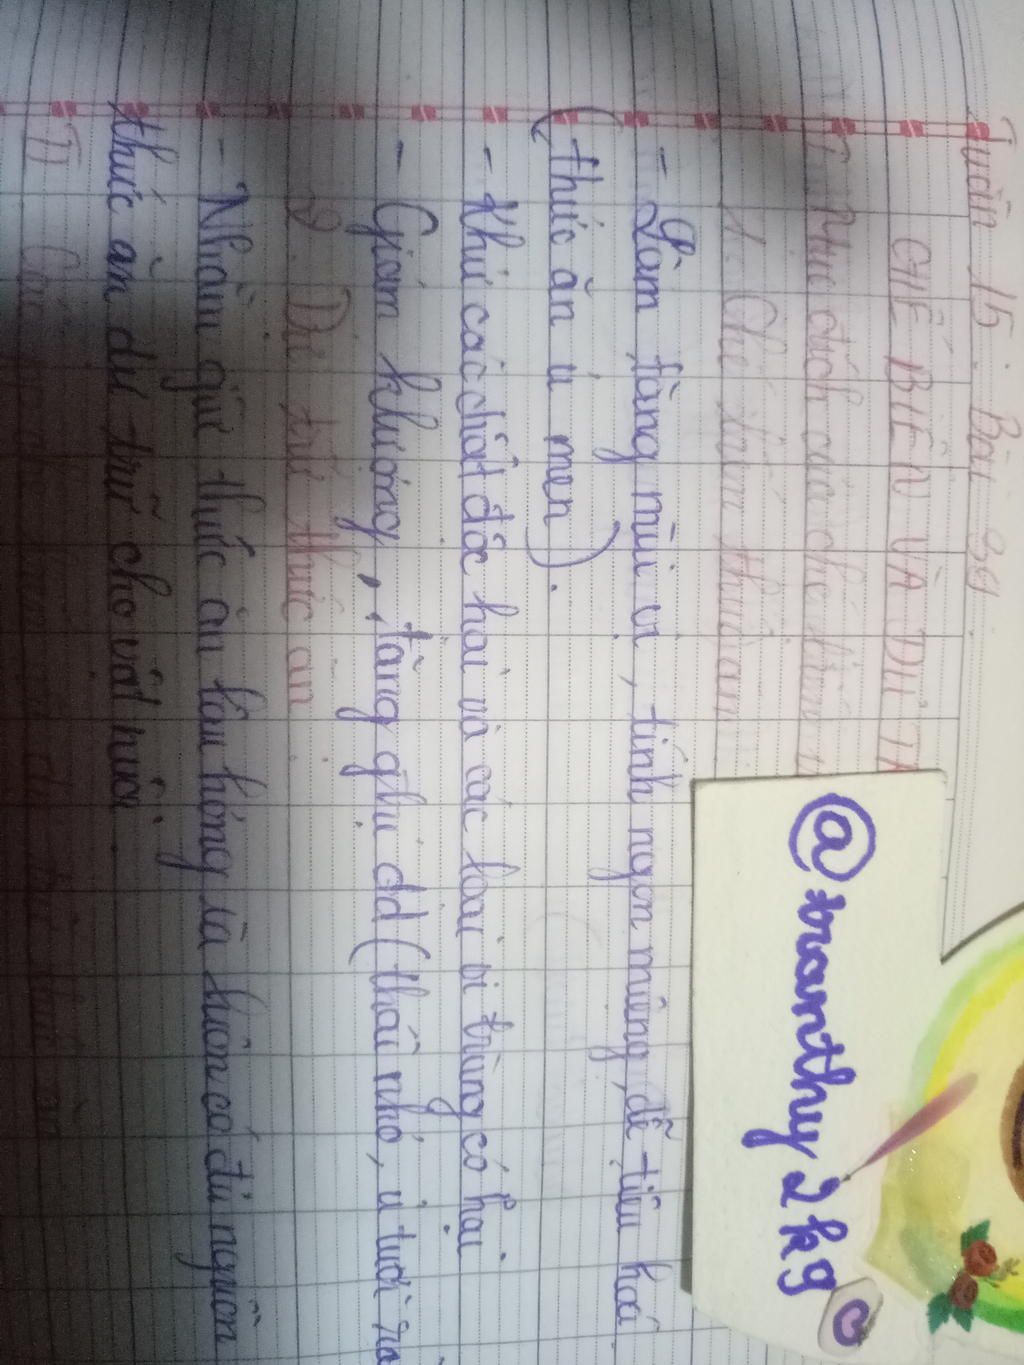 Tuần 15. Bài 39
CHẾ BIẾN VÀ DỰ TR
I. Mục đích của chế biến
1. Chế biến thức ăn
- Làm tăng mùi vị, tính ngon miệng, dễ tiêu hoá
(thức ăn ủ men).
- Khử các chất độc hại và các loại vi trùng có hại
- Giảm khlượng, tăng ghu dd (thái nhỏ, ủ tươi
2. Dự trữ thức ăn
- Nhằm giữ thức ăn lâu hỏng và luôn có đủ nguồn
thức ăn dự trữ cho vật nuôi.
II. Các
@tranthy2kg